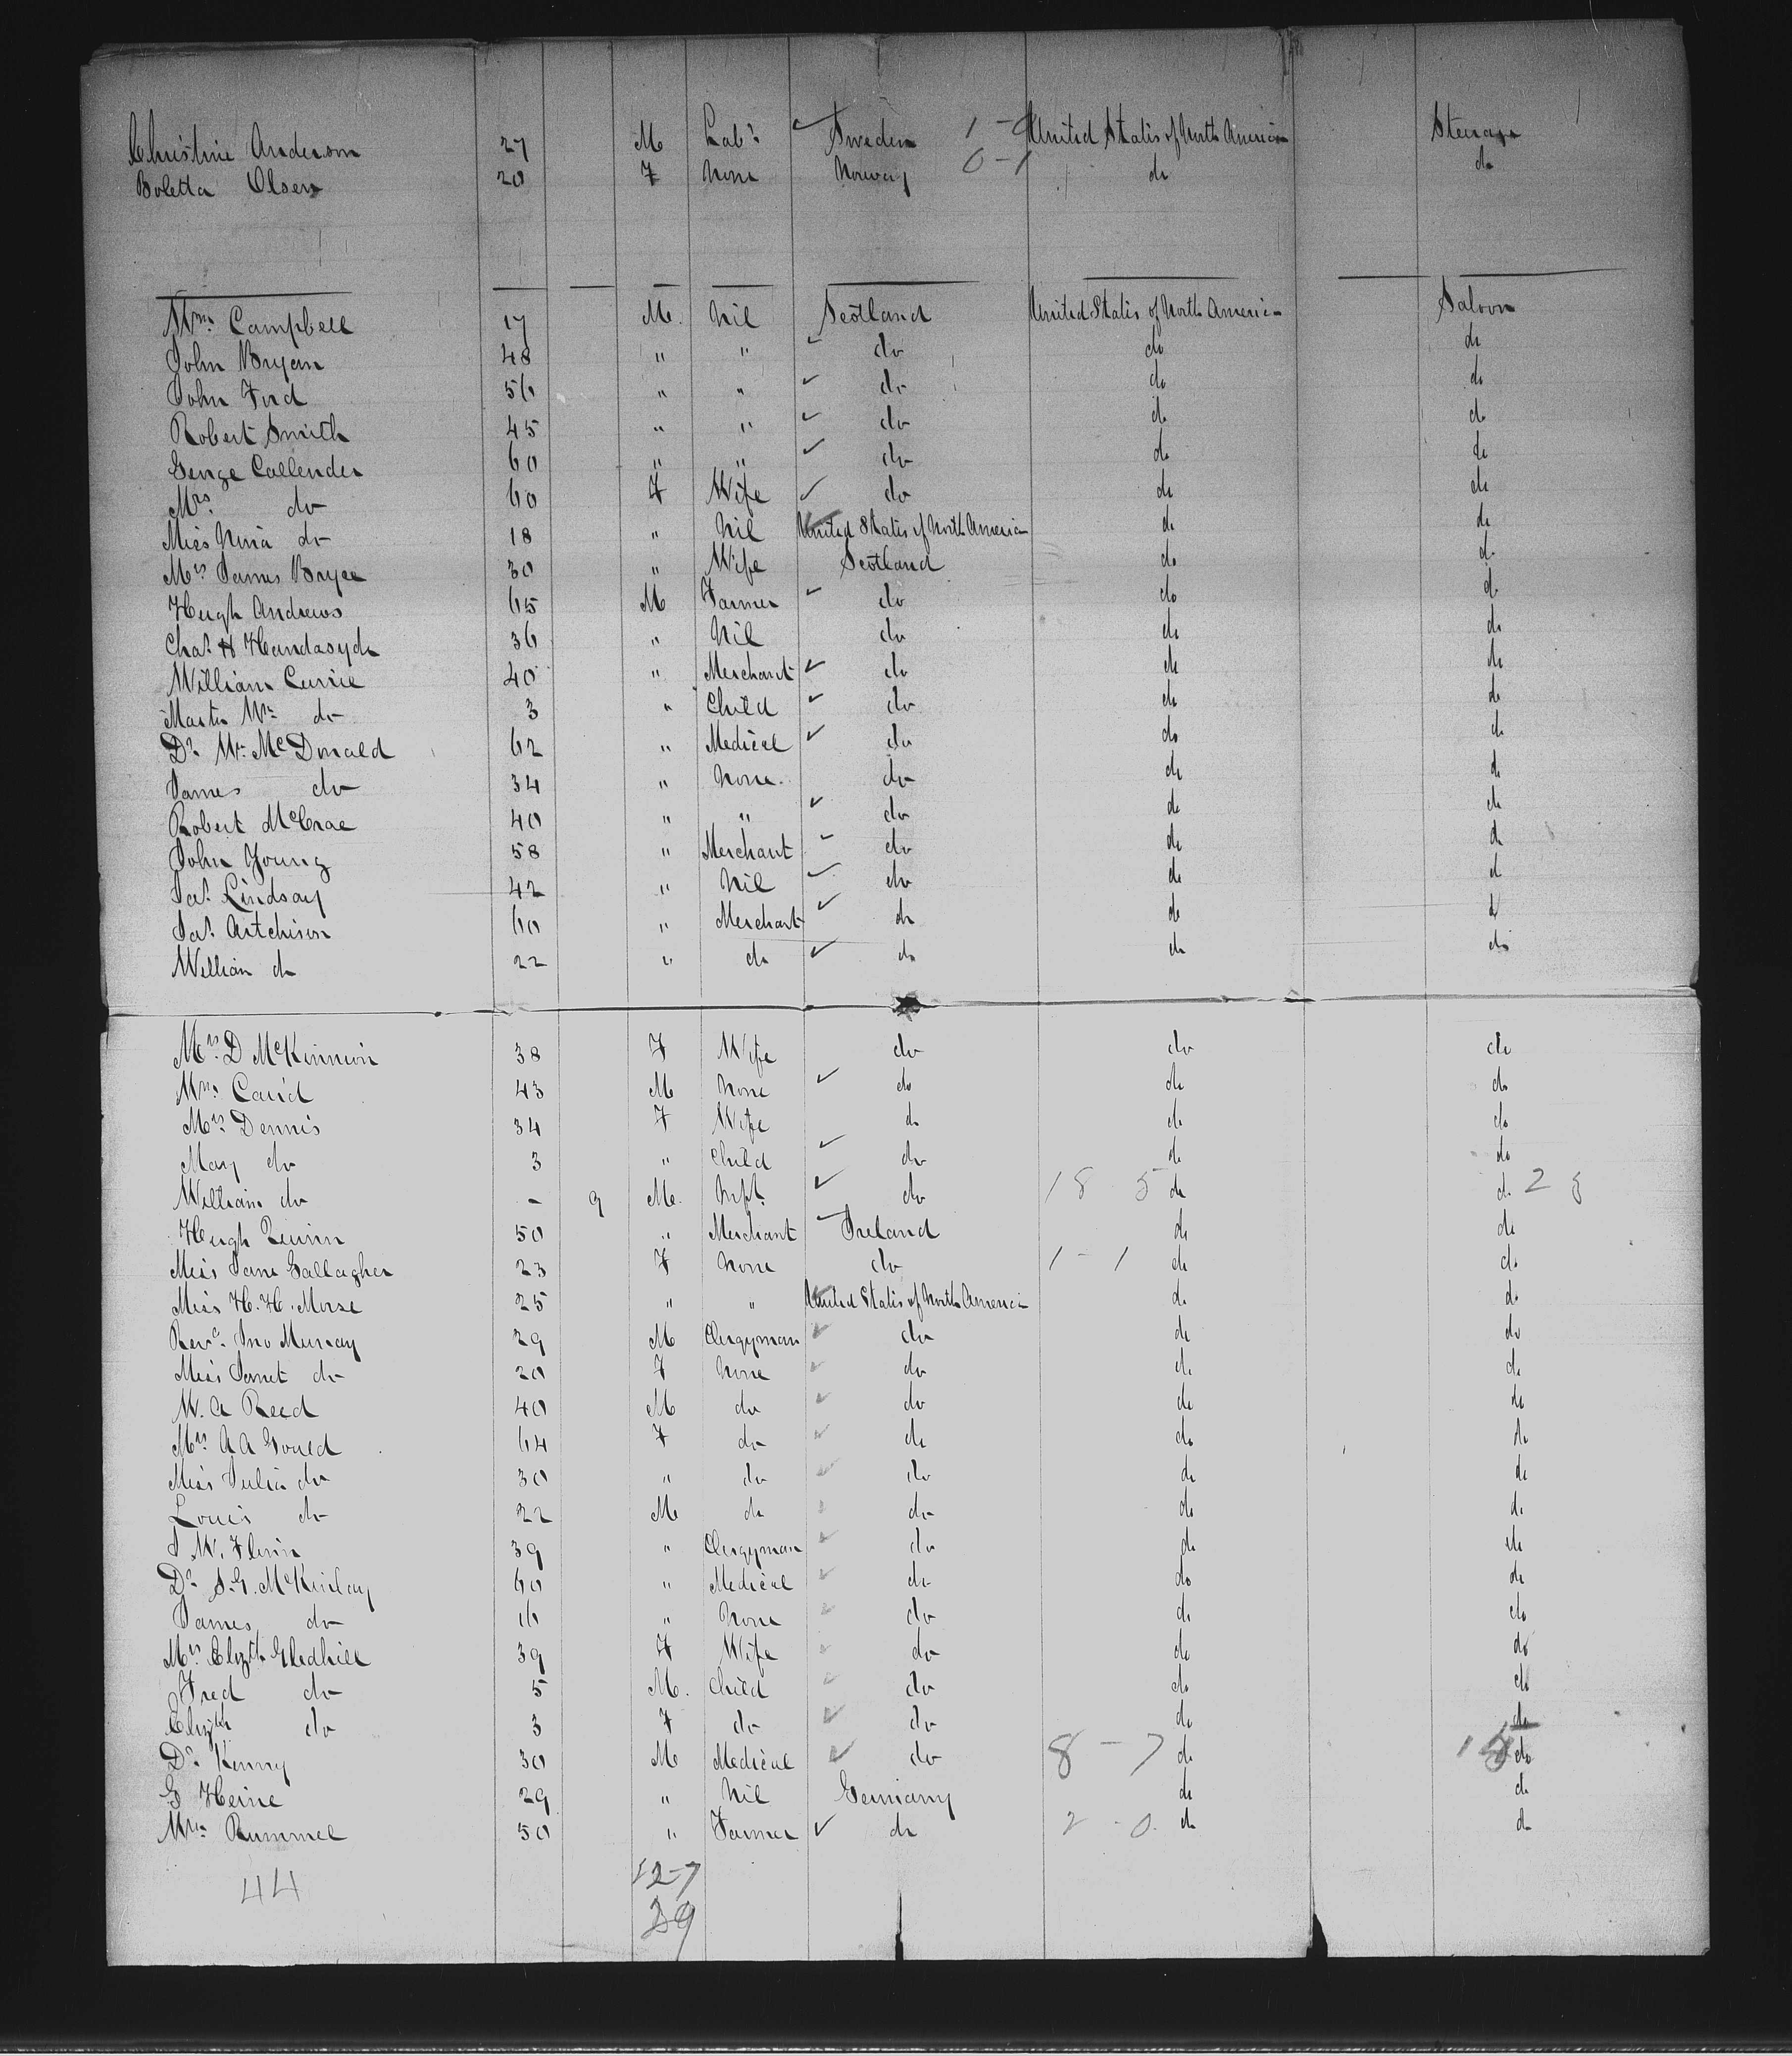 Christine Anderson 27 M Lab^r Sweden 1 - 0 United States of North America Steerage
Boletta Olsen 20 F None Norway 0 - 1 do do
W^m. Campbell 17 M. Nil Scotland United States of North America Saloon
John Bryan 48 " " do do do
John Ford 56 " " do do do
Robert Smith 45 " " do do do
George Callender 60 " " do do do
M^rs do 60 F Wife do do do
Miss Nina do 18 " Nil United States of North America do do
M^rs James Bryce 30 " Wife Scotland do do
Hugh Andrews 65 M Farmer do do do
Cha^s H Handasyde 36 " Nil do do do
William Currie 40 " Merchant do do do
Master W^m do 3 " Child do do do
D^r W. McDonald 62 " Medical do do do
James do 34 " None do do do
Robert McCrae 40 " " do do do
John Young 58 " Merchant do do do
Ja^s Lindsay 42 " Nil do do do
Ja^s Aitchison 60 " Merchant do do do
William do 22 " do do do do
M^rs D McKinnon 38 F Wife do do do
W^m. Caird 43 M None do do do
M^rs Dennis 34 F Wife do do do
Mary do 3 " Child do do do
William do - 9 M. Inft. do 18 5 do do 23
Hugh Quinn 50 " Merchant Ireland do do
Miss Jane Gallagher 23 F None do 1 - 1 do do
Miss H. H. Morse 25 " " United States of North America do do
Rev^d. Jno Murray 29 M Clergyman do do do
Miss Janet do 20 F None do do do
W. A Reed 40 M do do do do
M^rs A A Gould 64 F do do do do
Miss Julia do 30 " do do do do
Louis do 22 M do do do do
J W. Flinn 39 " Clergyman do do do
D^r S. G. McKinlay 60 " Medical do do do
James do 16 " None do do do
M^rs Elizth Gledhill 39 F Wife do do do
Fred do 5 M. Child do do do
Elizth do 3 F do do do do
D^r Kenny 30 M Medical do 8 - 7 do do
G Heine 29 " Nil Germany do do
W^m Rummel 50 " Farmer do 2 - 0. do do
44